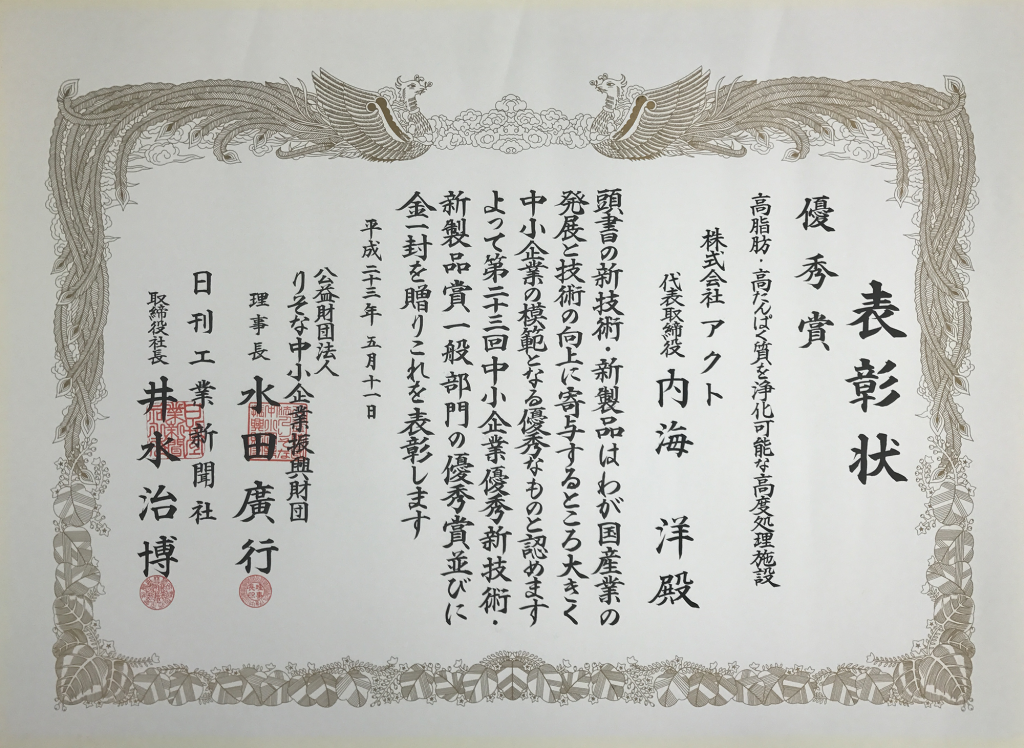 表彰状
優秀賞
高脂肪・高たんぱく質を浄化可能な高度処理施設
株式会社 アクト
代表取締役 内海 洋 殿
頭書の新技術・新製品はわが国産業の
発展と技術の向上に寄与するところ大きく
中小企業の模範となる優秀なものと認めます
よって第二十三回中小企業優秀新技術・
新製品賞一般部門の優秀賞並びに
金一封を贈りこれを表彰します
平成二十三年 五月十一日
公益財団法人
りそな中小企業振興財団
理事長 水田廣行
日刊工業新聞社
取締役社長 井水治博